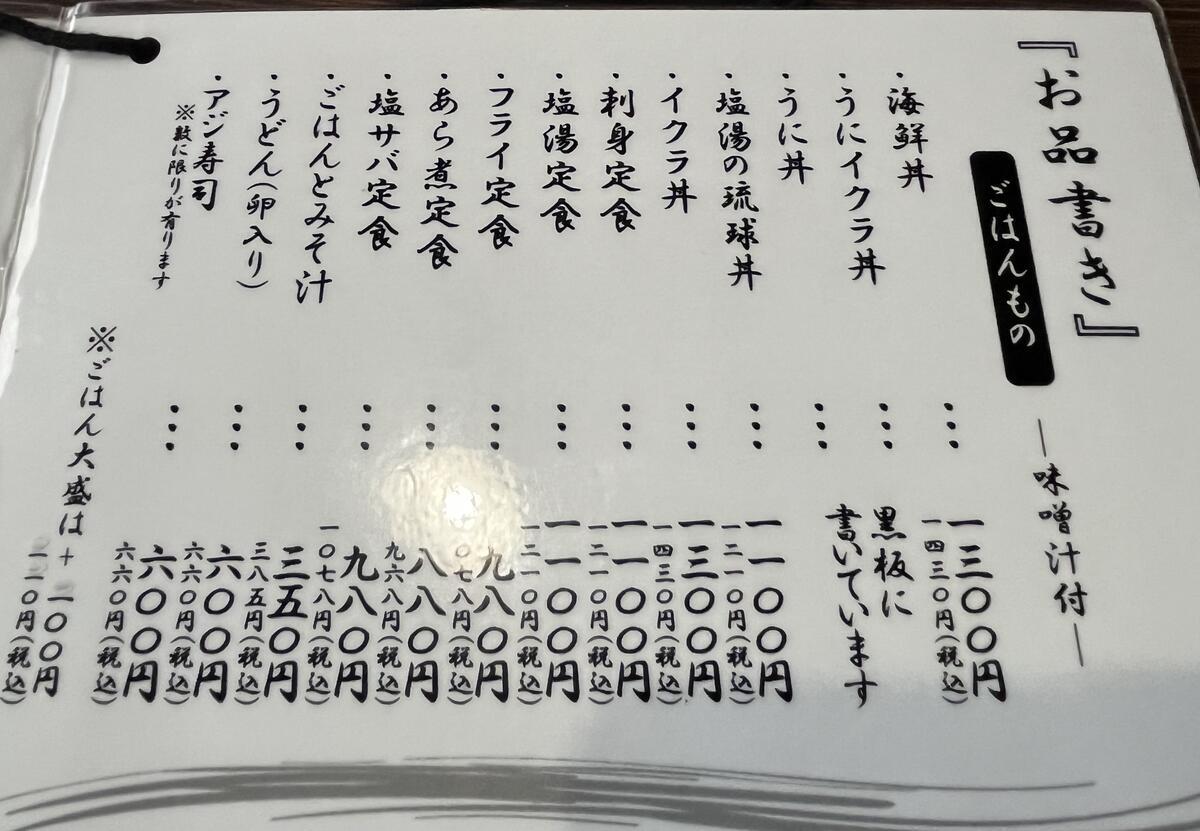 『お品書き』
ごはんもの
―味噌汁付―
・海鮮丼…一三〇〇円
一四三〇円(税込)
・うにイクラ丼…黒板に
・うに丼…書いています
・塩湯の琉球丼…一一〇〇円
一二一〇円(税込)
・イクラ丼…一三〇〇円
一四三〇円(税込)
・刺身定食…一一〇〇円
一二一〇円(税込)
・塩湯定食…一一〇〇円
一二一〇円(税込)
・フライ定食…九八〇円
一〇七八円(税込)
・あら煮定食…八八〇円
九六八円(税込)
・塩サバ定食…九八〇円
一〇七八円(税込)
・ごはんとみそ汁…三五〇円
三八五円(税込)
・うどん(卵入り)…六〇〇円
六六〇円(税込)
・アジ寿司…六〇〇円
※数に限りが有ります
六六〇円(税込)
※ごはん大盛は+一〇〇円
一一〇円(税込)